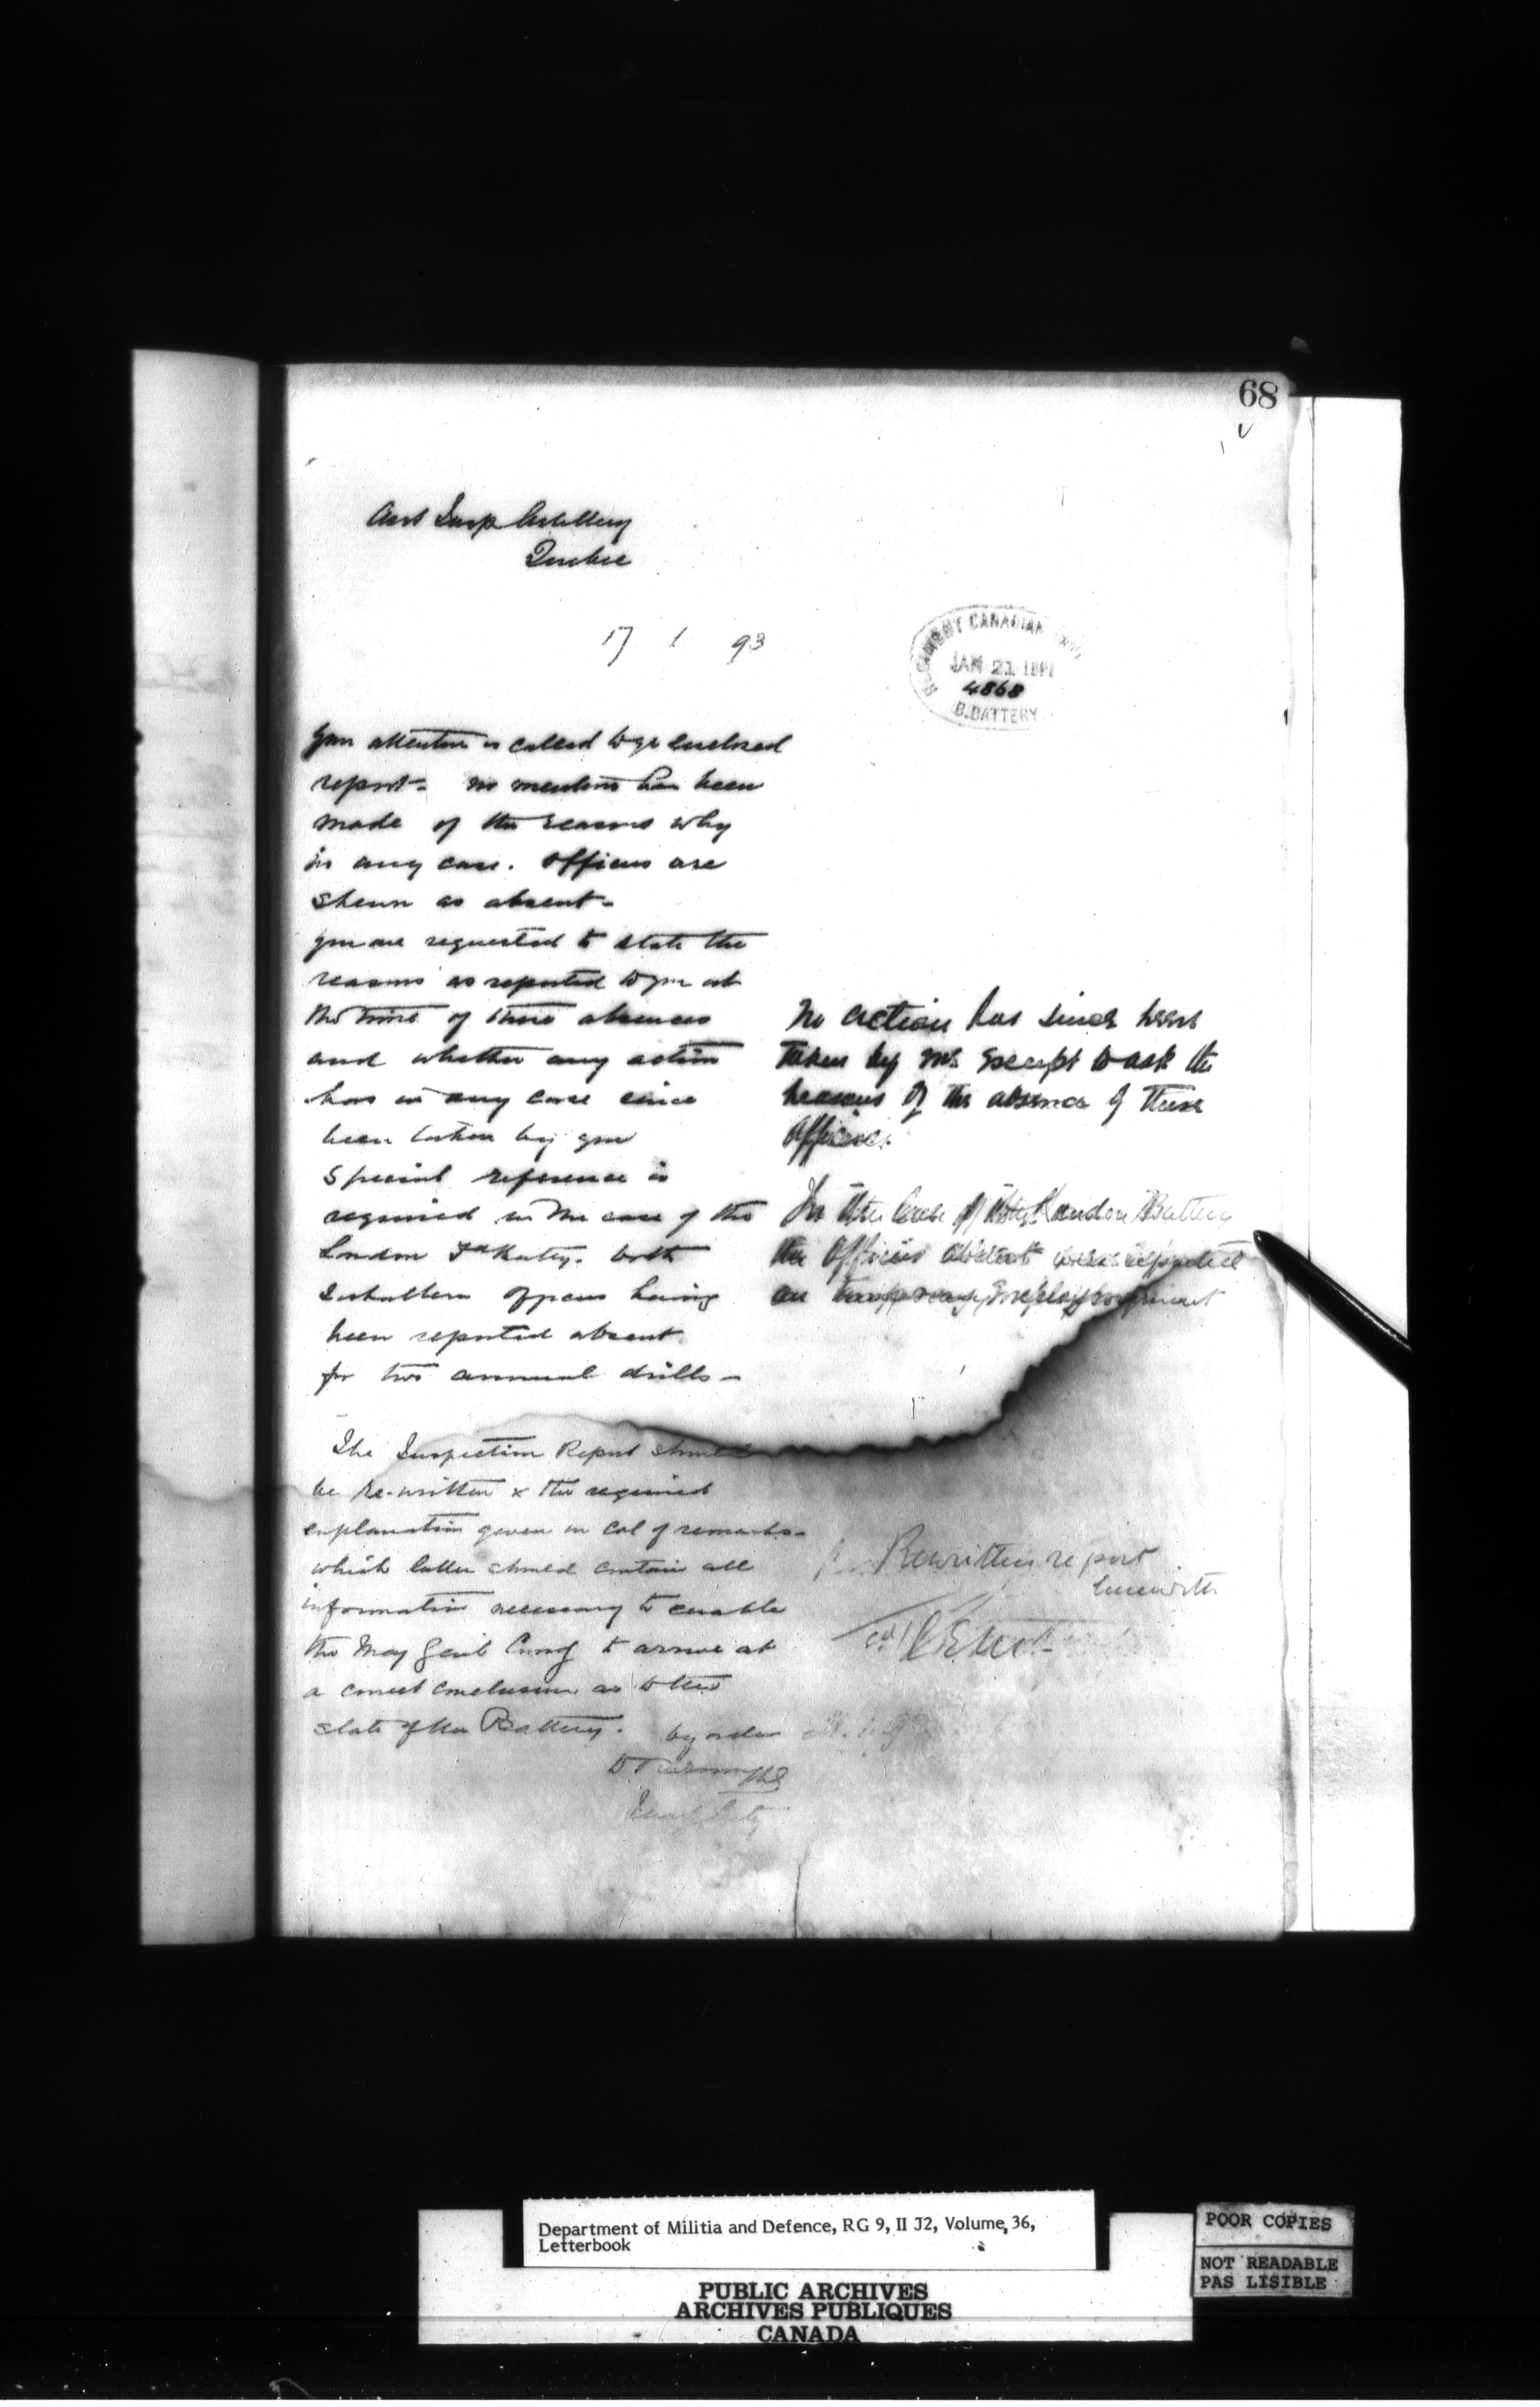 68
Asst Insp Artillery
Quebec
17 1 93
REGIMENT CANADIAN
JAN 21
4868
B. BATTERY
Your attention is called to ye enclosed
report - no mention has been
made of the reasons why
in any case. Officers are
shewn as absent -
you are requested to state the
reasons as reported to you at
the time of these absences
and whether any action
has in any case since
been taken by you
Special reference is
required in the case of the
London Fd Baty. both
Subaltern Officers having
been reported absent
for two annual drills -
The Inspection Report should
be re-written & the required
explanation given in Col of remarks -
which latter should contain all
information necessary to enable
the Maj Genl Comg to arrive at
a correct conclusion as to the
state of the Battery. by order
No action has since been
taken by me except to ask the
reasons of the absence of these
Officers.
In the case of the London Battery
the Officers absent were reported
on temporary employment
Rewritten report
herewith
Department of Militia and Defence, RG 9, II J2, Volume 36,
Letterbook
PUBLIC ARCHIVES
ARCHIVES PUBLIQUES
CANADA
POOR COPIES
NOT READABLE
PAS LISIBLE